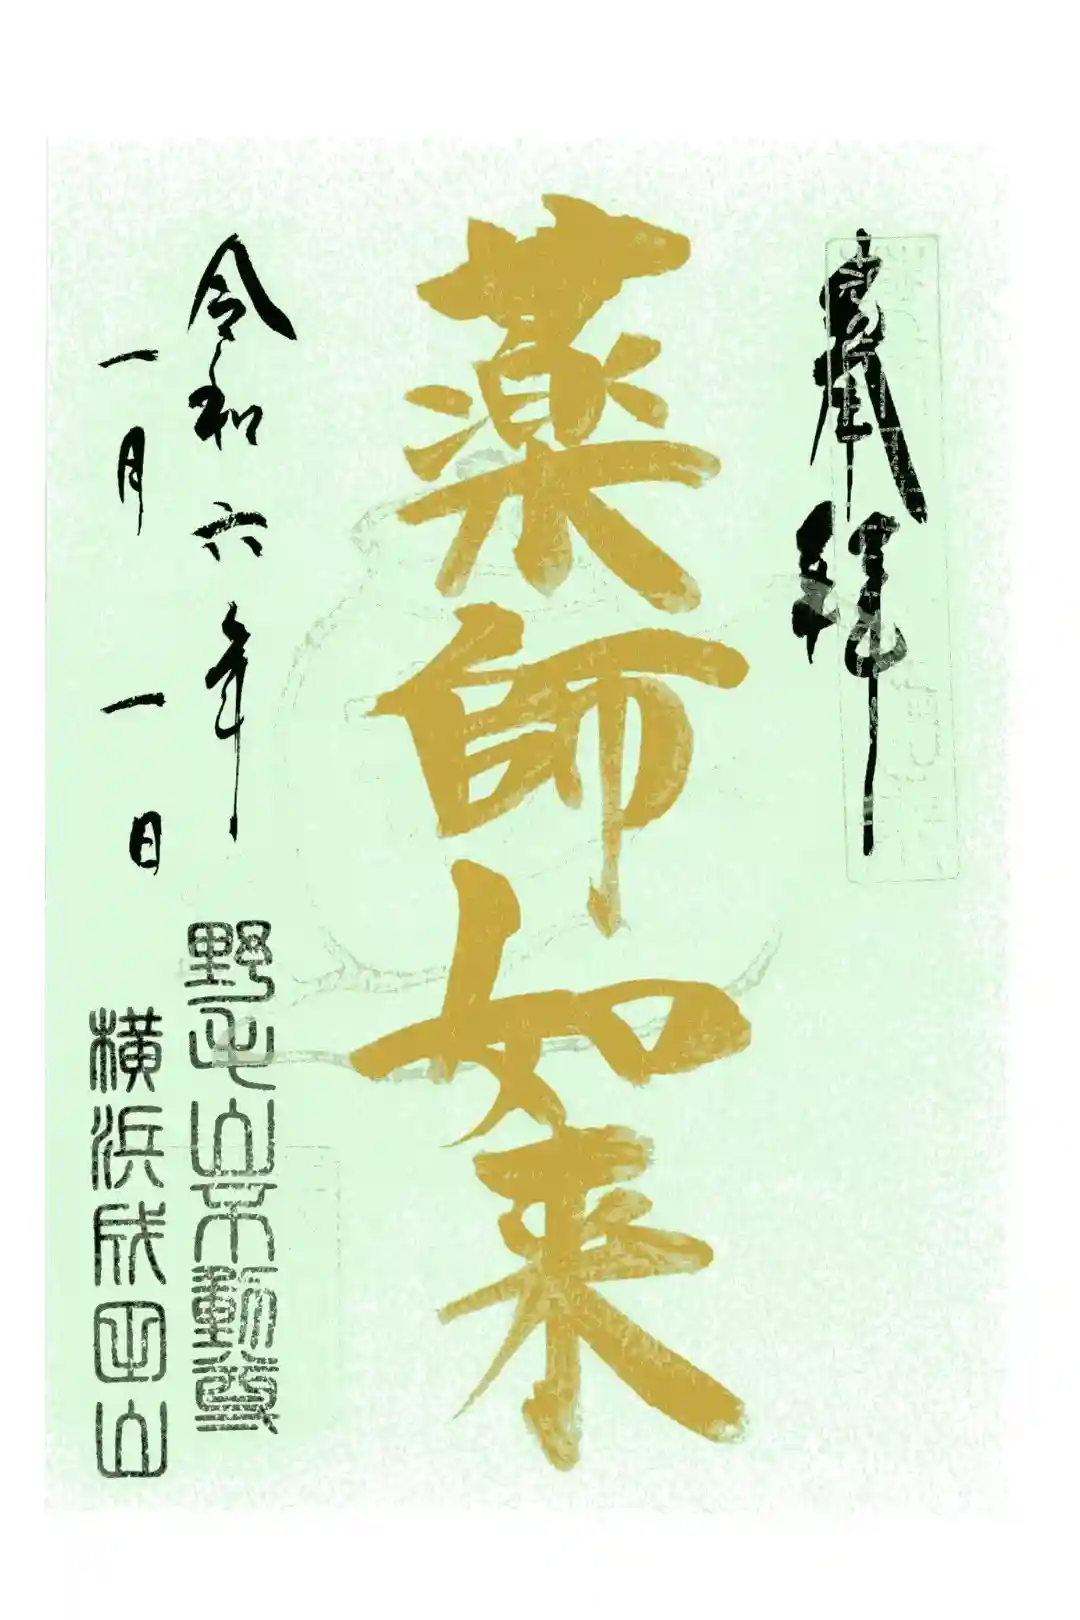 奉拝
薬師如来
令和六年
一月一日
野毛山不動尊
横浜成田山